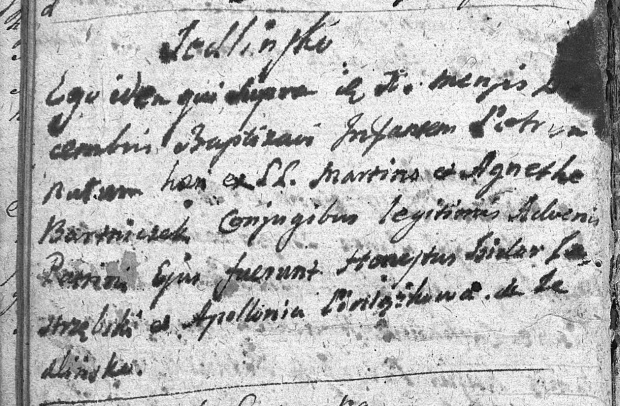 Jedlińsko
Ego idem qui supra mensis De
cembris Baptizavi Infantem Petrum
natum heri ex LL. Martino et Agnethe
Bartniczek Conjugibus legitimis Advenis
Patrini Ejus fuerunt Honestus Isidor Ja
strzębski et Apollinia de Je
dlińska.